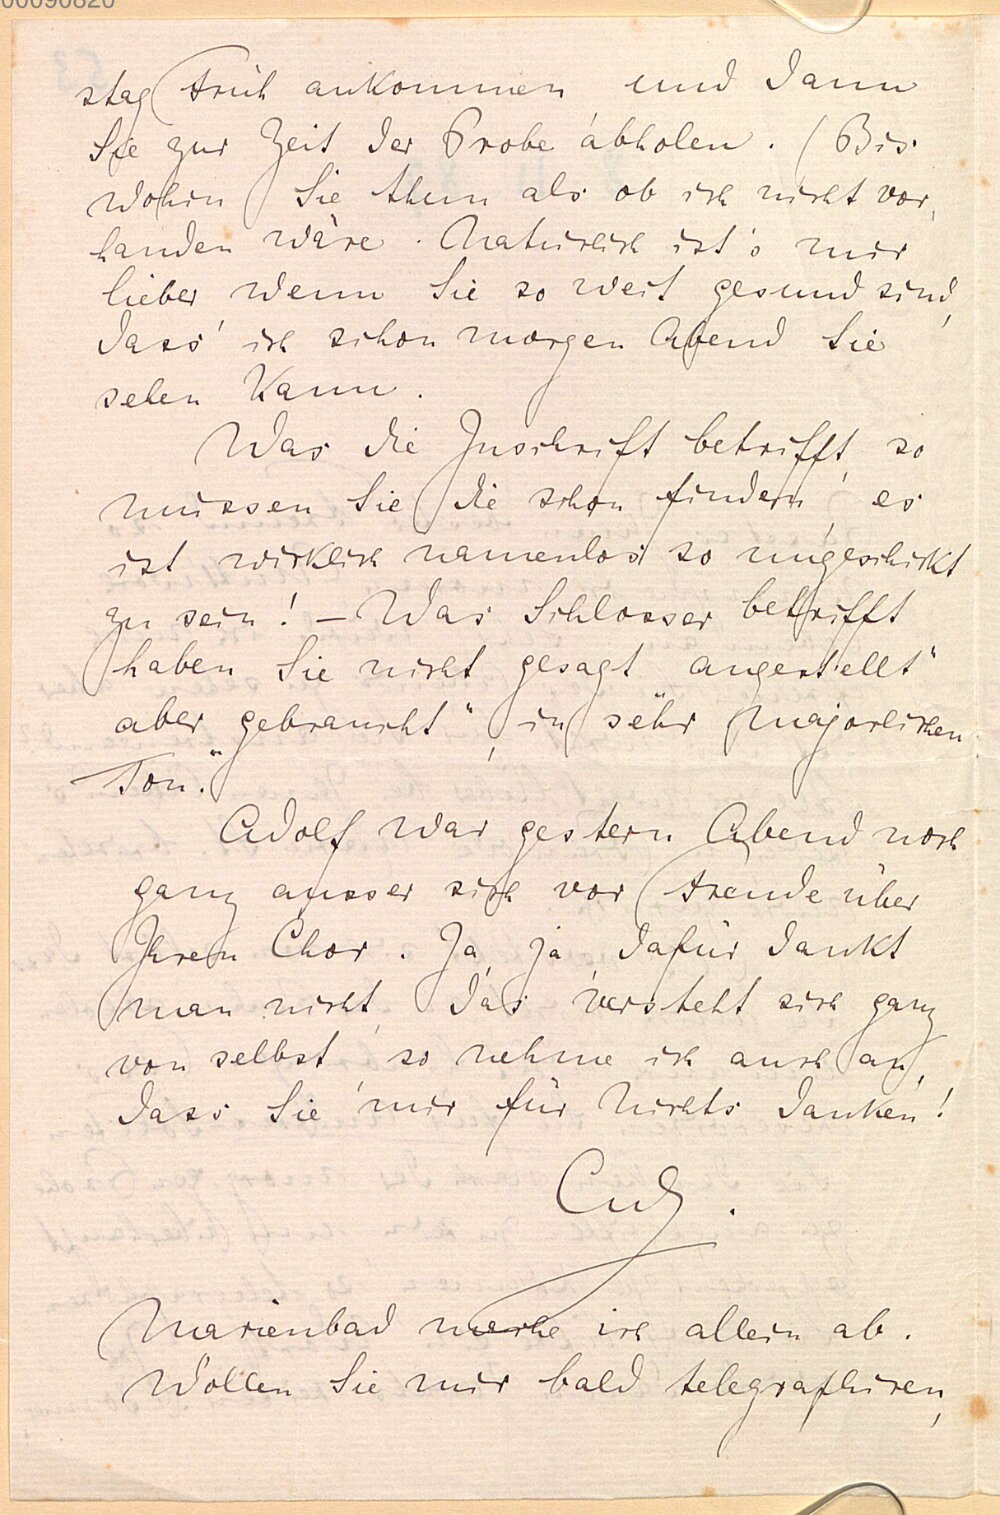 00090820
stag Früh ankommen, und dann
Sie zur Zeit der Probe abholen. (Bis
wohin Sie thun als ob ich nicht vor,
handen wäre. Natürlich ist's mir
lieber wenn Sie so weit gesund sind,
dass ich schon morgen Abend Sie
sehen kann.
Was die Inschrift betrifft, so
müssen Sie die schon finden, es
ist wirklich namenlos so ungeschickt
zu sein! – Was Schlosser betrifft
haben Sie nicht gesagt „angestellt“
aber „gebraucht“, in „sehr majorlichen
Ton.“
Adolf war gestern Abend noch
ganz ausser sich vor Freude über
Ihren Chor. Ja, ja, dafür dankt
man nicht, das versteht sich ganz
von selbst, so nehme ich auch an,
dass Sie mir für Nichts danken!
Marienbad mache ich allein ab.
Wollen Sie mir bald telegraphiren,